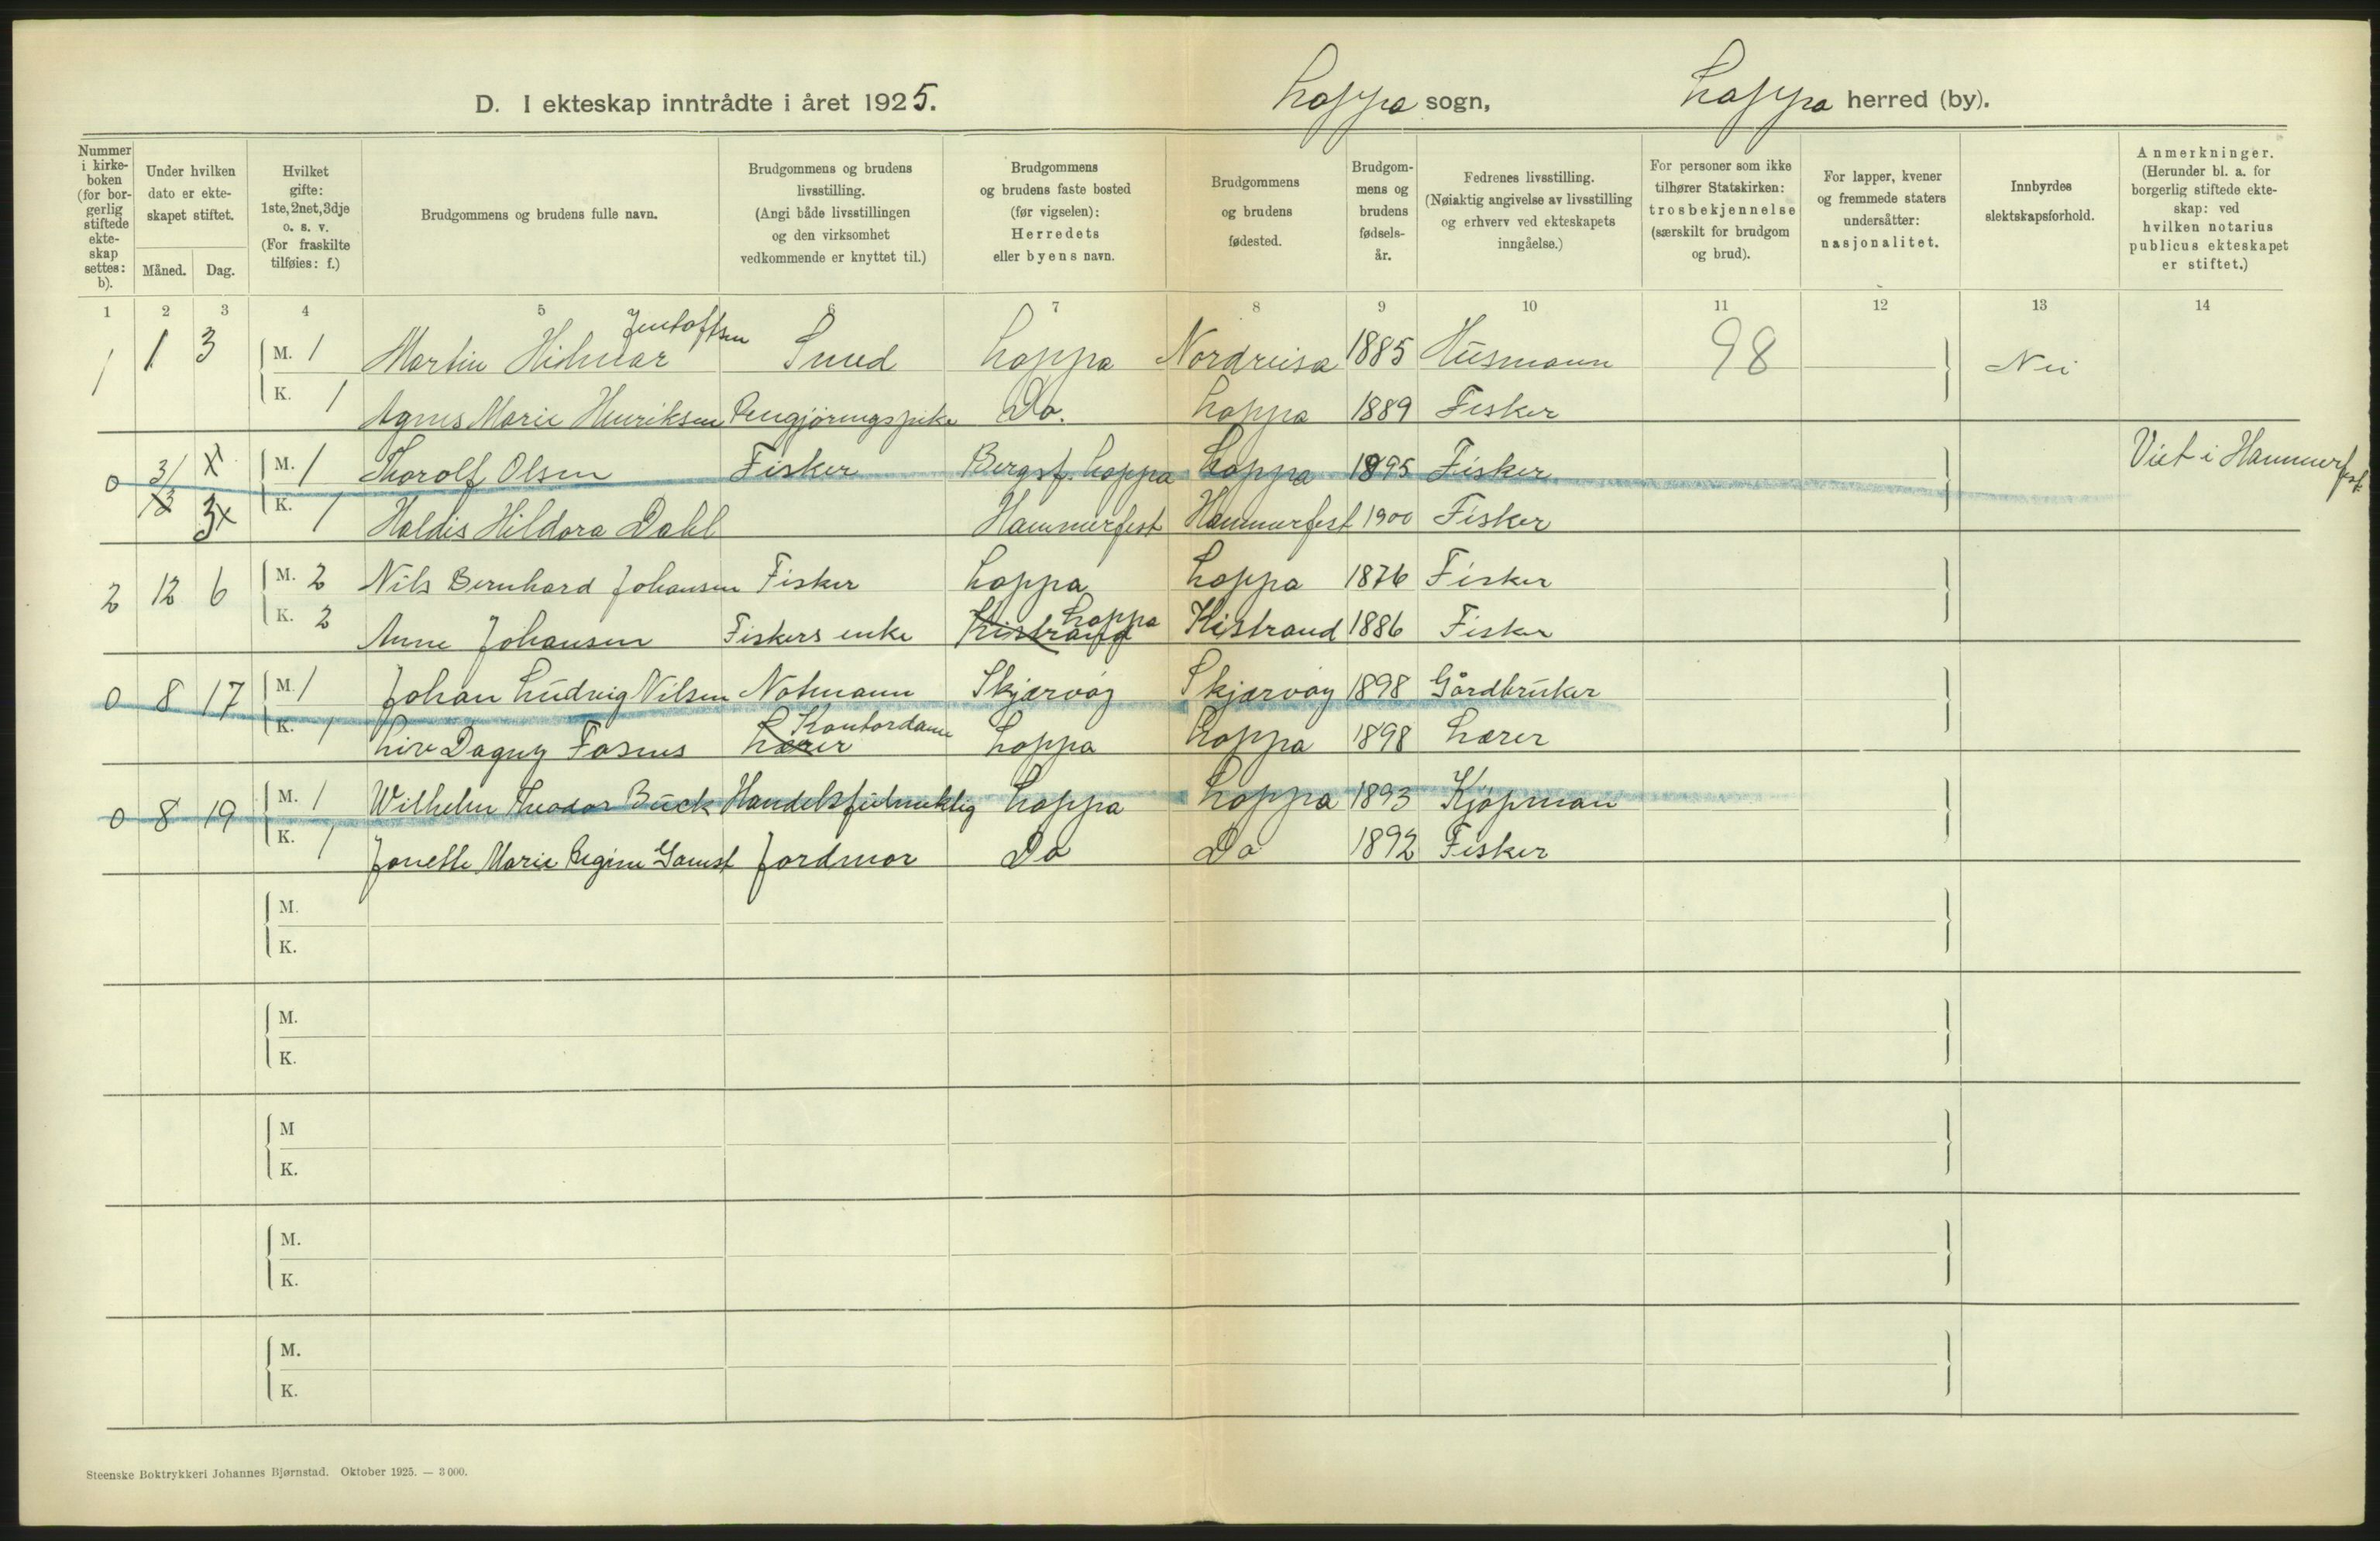 D. I ekteskap inntrådte i året 1925. Loppa sogn, Loppa herred (by).
Nummer i kirkeboken (for borgerlig stiftede ekteskap settes: b).
Under hvilken dato er ekteskapet stiftet.
Måned. Dag.
Hvilket gifte: 1ste, 2net, 3dje o. s. v. (For fraskilte tilføies: f.)
Brudgommens og brudens fulle navn.
Brudgommens og brudens livsstilling. (Angi både livsstillingen og den virksomhet vedkommende er knyttet til.)
Brudgommens og brudens faste bosted (før vigselen): Herredets eller byens navn.
Brudgommens og brudens fødested.
Brudgommens og brudens fødselsår.
Fedrenes livsstilling. (Nøiaktig angivelse av livsstilling og erhverv ved ekteskapets inngåelse.)
For personer som ikke tilhører Statskirken: trosbekjennelse (særskilt for brudgom og brud).
For lapper, kvener og fremmede staters undersåtter: nasjonalitet.
Innbyrdes slektskapsforhold.
Anmerkninger. (Herunder bl. a. for borgerlig stiftede ekteskap: ved hvilken notarius publicus ekteskapet er stiftet.)
1 2 3 4 5 6 7 8 9 10 11 12 13 14
1 1 3 M. 1 Martin Hilmar Jentoftsen Smed Loppa Nordreisa 1885 Husmann 98 Nei
K. 1 Agnes Marie Henriksen Rengjøringspike Do. Loppa 1889 Fisker
0 3/ X M. 1 Thorolf Olsen Fisker Bergsf. Loppa Loppa 1895 Fisker Viet i Hammerfest
3x K. 1 Haldis Hildora Dahl Hammerfest Hammerfest 1900 Fisker
2 12 6 M. 2 Nils Bernhard Johansen Fisker Loppa Loppa 1876 Fisker
K. 2 Anne Johansen Fiskers enke Kistrand Loppa Kistrand 1886 Fisker
0 8 17 M. 1 Johan Ludvig Nilsen Notmann Skjærvøy Skjærvøy 1898 Gårdbruker
K. 1 Liv Dagny Fosnes Lærer Kontordame Loppa Loppa 1898 Lærer
0 8 19 M. 1 Wilhelm Theodor Buck Handelsfulmektig Loppa Loppa 1893 Kjøpman
K. 1 Jonette Marie Regine Gamst Jordmor Do Do 1892 Fisker
M.
K.
M.
K.
M
K.
M.
K.
M.
K.
Steenske Boktrykkeri Johannes Bjørnstad. Oktober 1925. — 3 000.